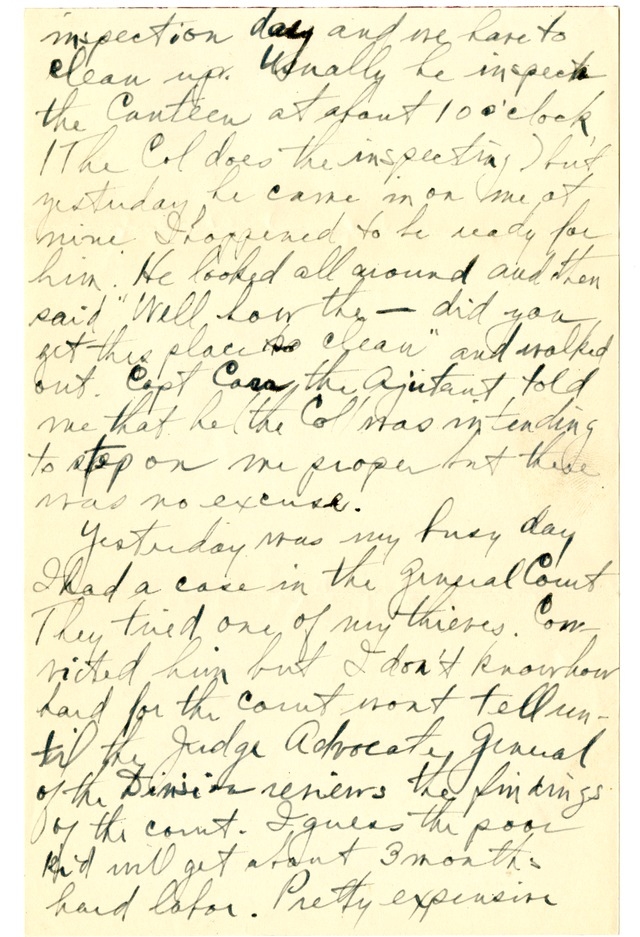 inspection day and we have to
clean up. Usually he inspects
the Canteen at about 10 o'clock,
(The Col does the inspecting) but
yesterday he came in on me at
nine I happened to be ready for
him. He looked all around and then
said "Well how the — did you
get this place so clean" and walked
out. Capt the Ajutant told
me that he (the Col) was intending
to step on me proper but there
was no excuse.
Yesterday was my busy day
I had a case in the General Court
They tried one of my thieves. Con-
victed him but I don't know how
hard for the court wont tell un-
til the Judge Advocate General
of the Division reviews the findings
of the court. I guess the poor
kid will get about 3 months
hard labor. Pretty expensive